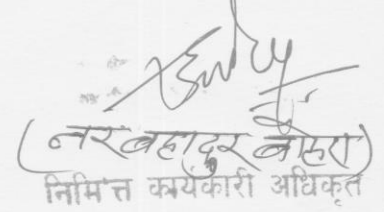 (नर बहादुर बोहरा)
निमित्त कार्यकारी अधिकृत